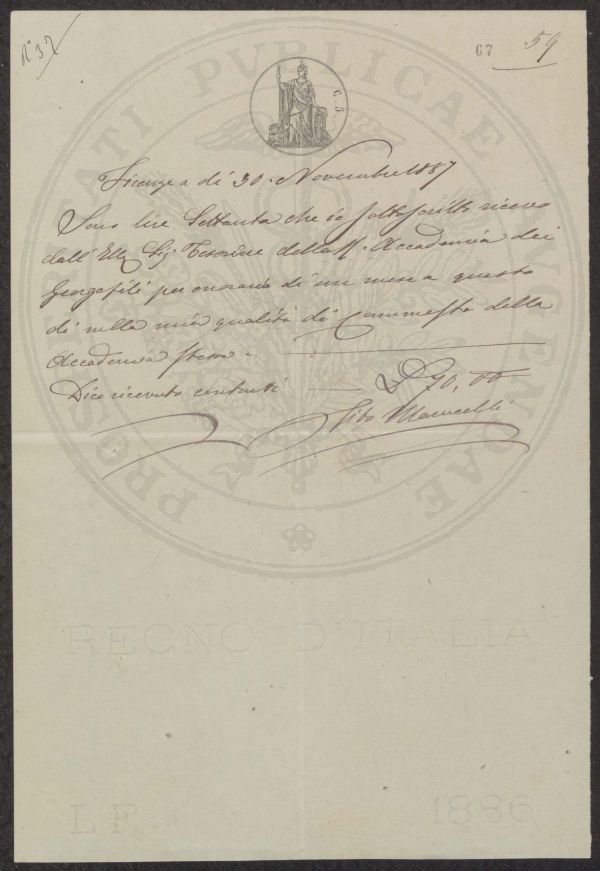 N° 37
67 59
C. 5
PROSPERITATI PVBLICAE AVGENDAE
Firenze a dì 30. Novembre 1887
Sono lire Settanta che io sottoscritto ricevo
dall' Sig Tesoriere della R. Accademia dei
Georgofili per onorario di un mese a questo
dì nella mia qualità di Commesso della
Accademia stessa.
Dico ricevuto contanti £ 70,00
Tito Marucelli
REGNO D'ITALIA
L F 1886